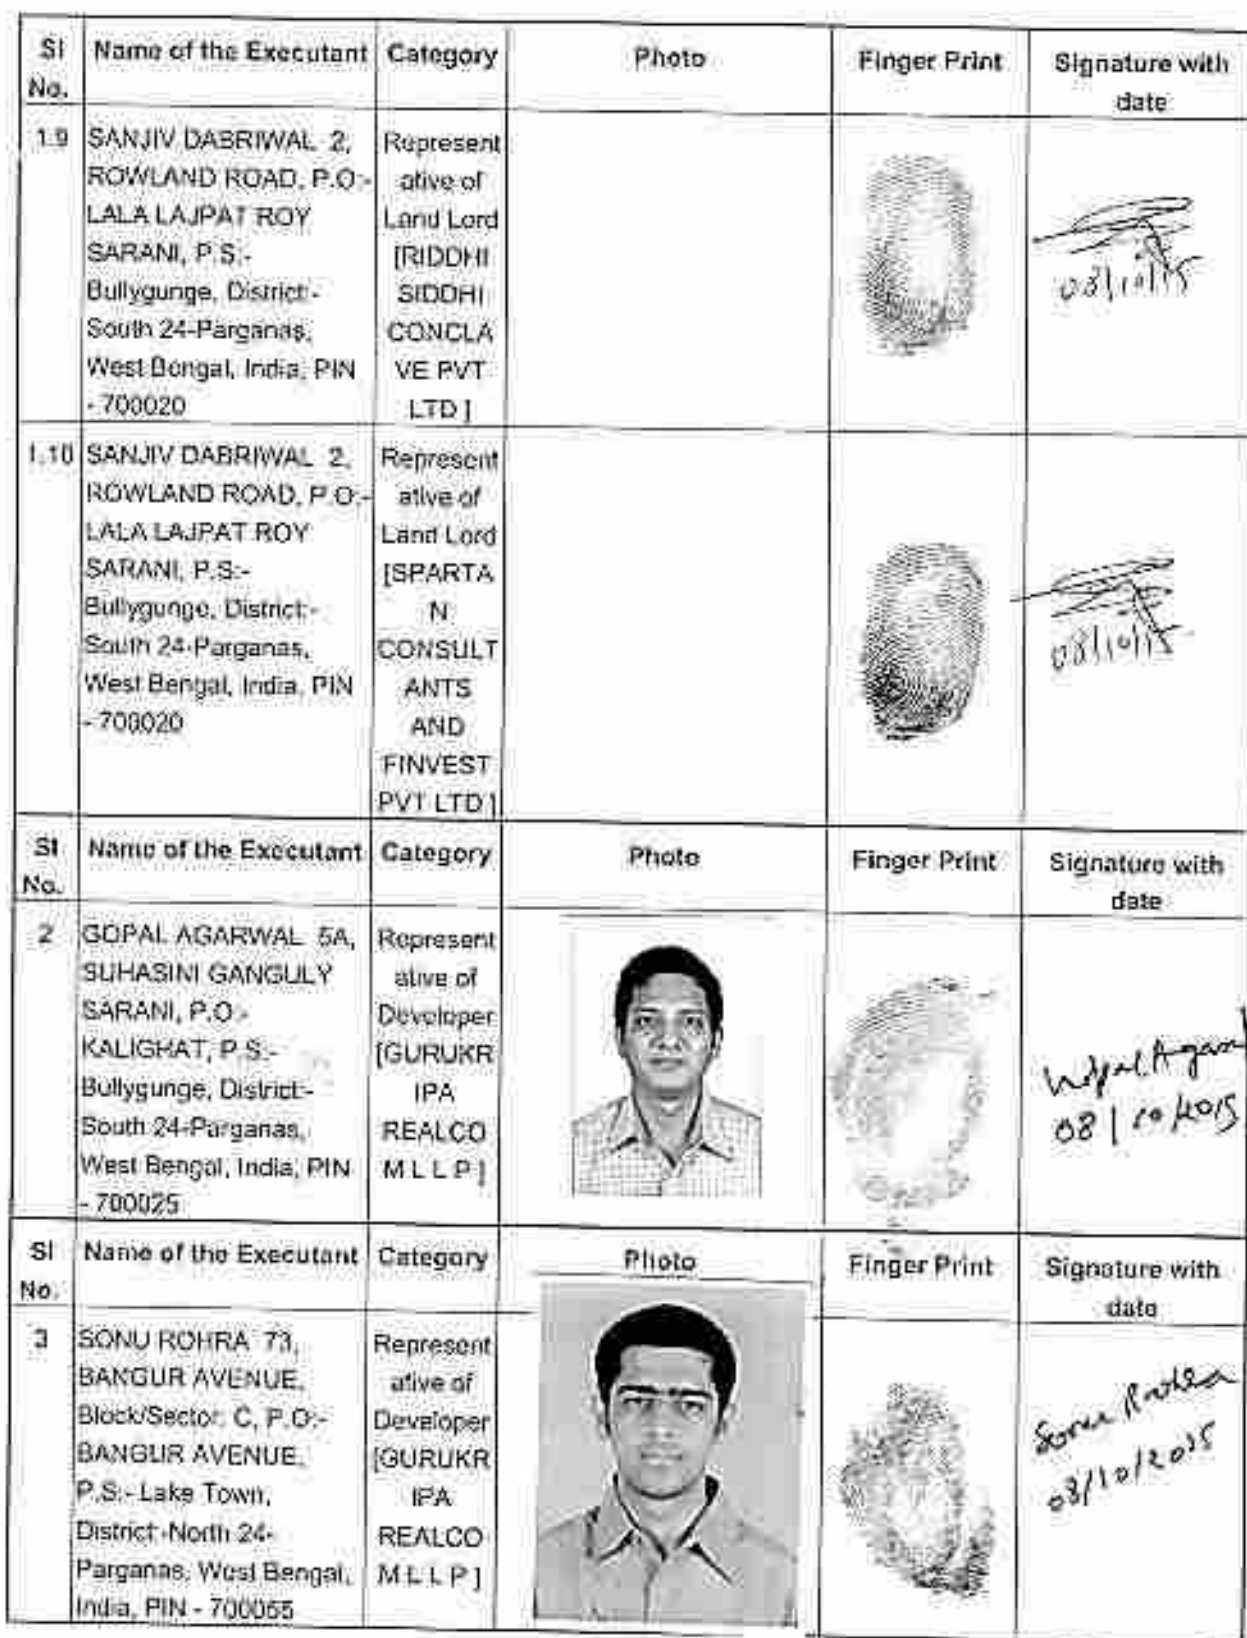 Sl No.
Name of the Executant
Category
Photo
Finger Print
Signature with date
1.9
SANJIV DABRIWAL 2,
ROWLAND ROAD, P.O:-
LALA LAJPAT ROY
SARANI, P.S:-
Bullygunge, District:-
South 24-Parganas,
West Bengal, India, PIN
- 700020
Represent
ative of
Land Lord
[RIDDHI
SIDDHI
CONCLA
VE PVT
LTD ]
08/10/15
1.10
SANJIV DABRIWAL 2,
ROWLAND ROAD, P.O:-
LALA LAJPAT ROY
SARANI, P.S:-
Bullygunge, District:-
South 24-Parganas,
West Bengal, India, PIN
- 700020
Represent
ative of
Land Lord
[SPARTA
N
CONSULT
ANTS
AND
FINVEST
PVT LTD ]
08/10/15
Sl No.
Name of the Executant
Category
Photo
Finger Print
Signature with date
2
GOPAL AGARWAL 5A,
SUHASINI GANGULY
SARANI, P.O:-
KALIGHAT, P.S:-
Bullygunge, District:-
South 24-Parganas,
West Bengal, India, PIN
- 700025
Represent
ative of
Developer
[GURUKR
IPA
REALCO
M L L P ]
08/10/2015
Sl No.
Name of the Executant
Category
Photo
Finger Print
Signature with date
3
SONU ROHRA 73,
BANGUR AVENUE,
Block/Sector: C, P.O:-
BANGUR AVENUE,
P.S:- Lake Town,
District:-North 24-
Parganas, West Bengal,
India, PIN - 700055
Represent
ative of
Developer
[GURUKR
IPA
REALCO
M L L P ]
Sonu Rohra
08/10/2015